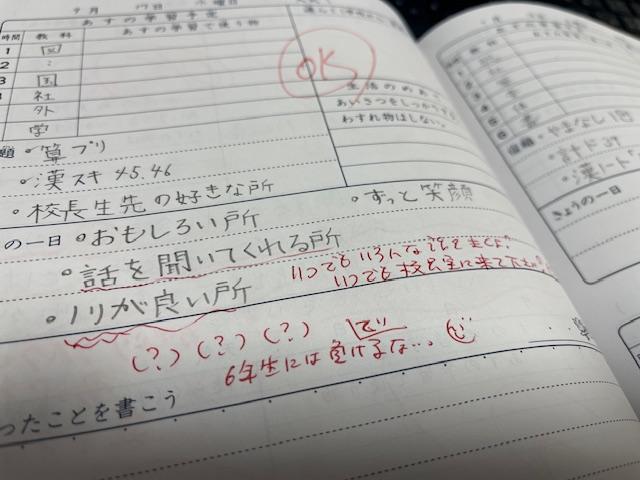 9月 17日 水曜日
あすの学習予定
時間 教科 あすの学習で使う物
1 図
2 〃
3 国
社
外
学
OK
生活のめあて
あいさつをしっかり
わすれ物はしない。
題 ・算プリ
・漢スキ 45.46
・校長生先の好きな所
の一日 ・おもしろい戸所
・ずっと笑顔
・話を聞いてくれる所
いつでもいろんな話を
いつでも校長室に来て
・ノリが良い戸所
(?)(?)(?)
6年生には負けるな…
ったことを書こう
宿題 ・やまなし 1回
・計ド37
・漢ノート
きょうの一日